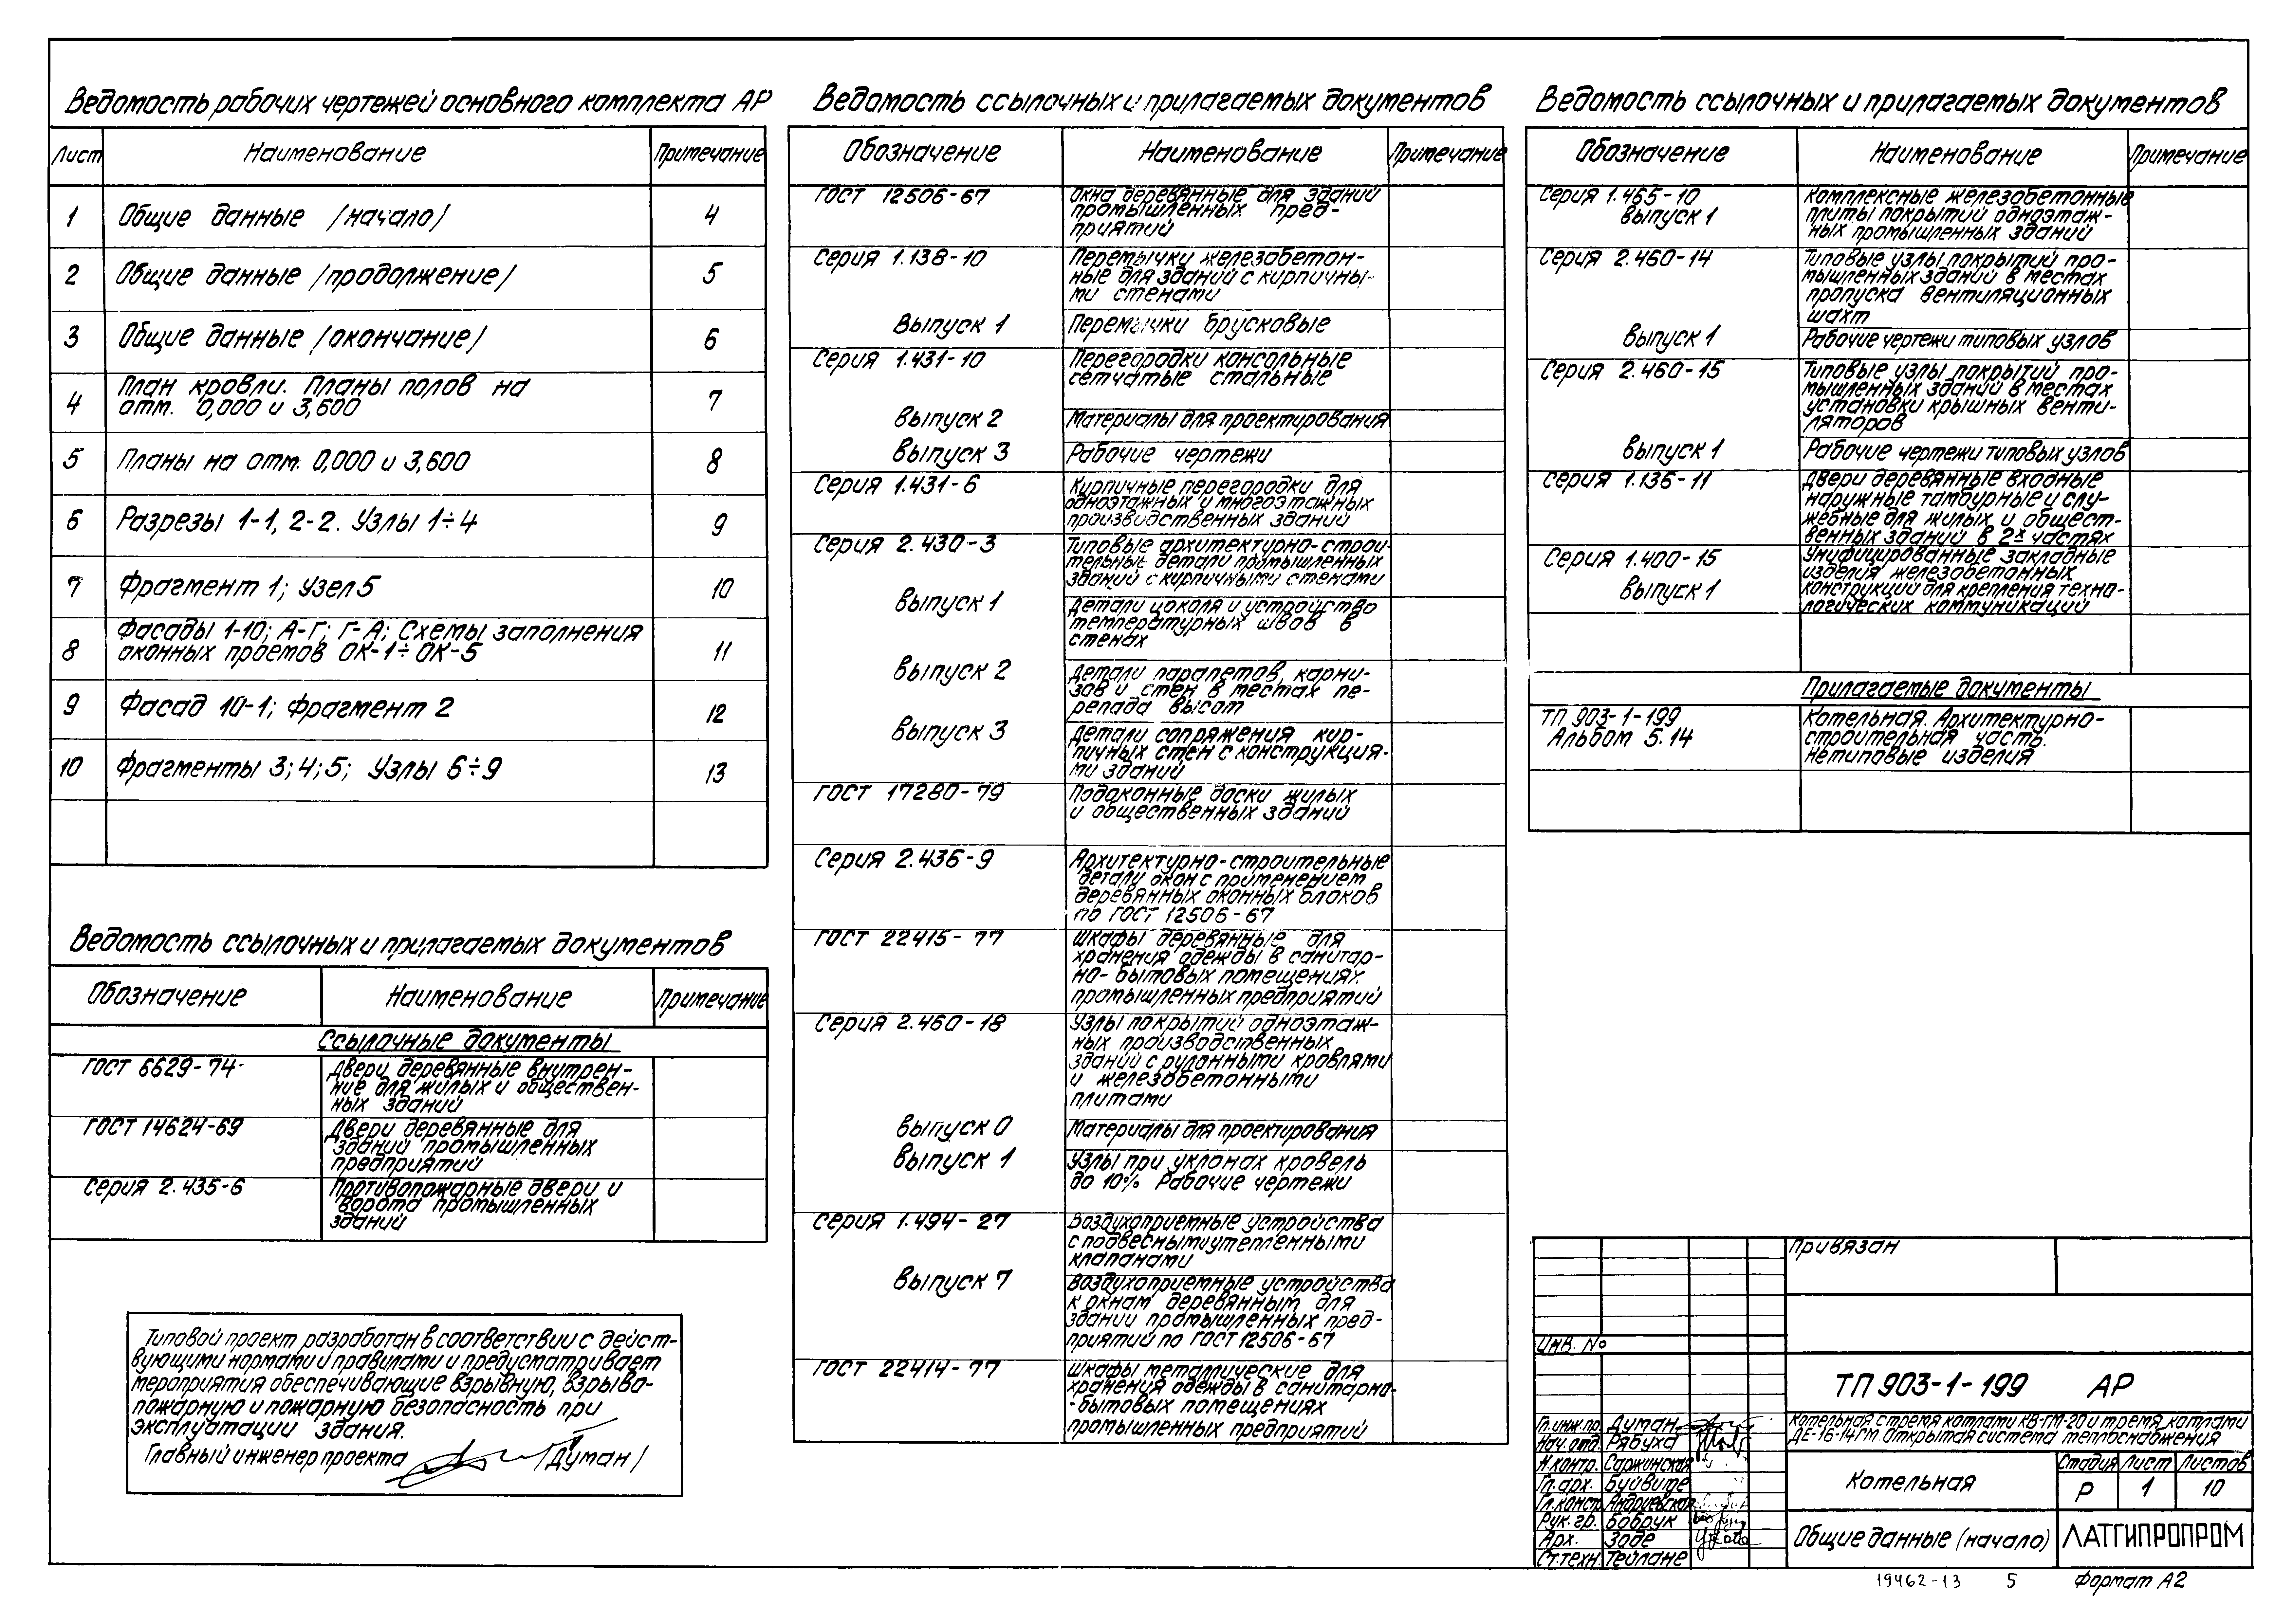 Ведомость рабочих чертежей основного комплекта АР
Лист Наименование Примечание
1 Общие данные /начало/ 4
2 Общие данные /продолжение/ 5
3 Общие данные /окончание/ 6
4 План кровли. Планы полов на
отм. 0,000 и 3,600 7
5 Планы на отм. 0,000 и 3,600 8
6 Разрезы 1-1, 2-2. Узлы 1÷4 9
7 Фрагмент 1; Узел 5 10
8 Фасады 1-10; А-Г; Г-А; Схемы заполнения
оконных проемов ОК-1÷ОК-5 11
9 Фасад 10-1; Фрагмент 2 12
10 Фрагменты 3; 4; 5; Узлы 6÷9 13
Ведомость ссылочных и прилагаемых документов
Обозначение Наименование Примечание
Ссылочные документы
ГОСТ 6629-74 Двери деревянные внутрен-
ние для жилых и обществен-
ных зданий
ГОСТ 14624-69 Двери деревянные для
зданий промышленных
предприятий
Серия 2.435-6 Противопожарные двери и
ворота промышленных
зданий
Типовой проект разработан в соответствии с дейст-
вующими нормами и правилами и предусматривает
мероприятия обеспечивающие взрывную, взрыво-
пожарную и пожарную безопасность при
эксплуатации здания.
Главный инженер проекта /Думан/
Ведомость ссылочных и прилагаемых документов
Обозначение Наименование Примечание
ГОСТ 12506-67 Окна деревянные для зданий
промышленных пред-
приятий
Серия 1.138-10 Перемычки железобетон-
ные для зданий с кирпичны-
ми стенами
Выпуск 1 Перемычки брусковые
Серия 1.431-10 Перегородки консольные
сетчатые стальные
выпуск 2 Материалы для проектирования
выпуск 3 Рабочие чертежи
Серия 1.431-6 Кирпичные перегородки для
одноэтажных и многоэтажных
производственных зданий
Серия 2.430-3 Типовые архитектурно-строи-
тельные детали промышленных
зданий с кирпичными стенами
выпуск 1 Детали цоколя и устройство
температурных швов в
стенах
выпуск 2 Детали парапетов, карни-
зов и стен в местах пе-
репада высот
выпуск 3 Детали сопряжения кир-
пичных стен с конструкция-
ми зданий
ГОСТ 17280-79 Подоконные доски жилых
и общественных зданий
Серия 2.436-9 Архитектурно-строительные
детали окон с применением
деревянных оконных блоков
по ГОСТ 12506-67
ГОСТ 22415-77 Шкафы деревянные для
хранения одежды в санитар-
но-бытовых помещениях
промышленных предприятий
Серия 2.460-18 Узлы покрытий одноэтаж-
ных производственных
зданий с рулонными кровлями
и железобетонными
плитами
выпуск 0 Материалы для проектирования
выпуск 1 Узлы при уклонах кровель
до 10% Рабочие чертежи
Серия 1.494-27 Воздухоприемные устройства
с подвесными утепленными
клапанами
выпуск 7 Воздухоприемные устройства
к окнам деревянным для
зданий промышленных пред-
приятий по ГОСТ 12506-67
ГОСТ 22414-77 Шкафы металлические для
хранения одежды в санитарно-
-бытовых помещениях
промышленных предприятий
Ведомость ссылочных и прилагаемых документов
Обозначение Наименование Примечание
Серия 1.465-10 Комплексные железобетонные
выпуск 1 плиты покрытий одноэтаж-
ных промышленных зданий
Серия 2.460-14 Типовые узлы покрытий про-
мышленных зданий в местах
пропуска вентиляционных
шахт
выпуск 1 Рабочие чертежи типовых узлов
Серия 2.460-15 Типовые узлы покрытий про-
мышленных зданий в местах
установки крышных венти-
ляторов
выпуск 1 Рабочие чертежи типовых узлов
Серия 1.136-11 Двери деревянные входные
наружные тамбурные и слу-
жебные для жилых и общест-
венных зданий в 2х частях
Серия 1.400-15 Унифицированные закладные
изделия железобетонных
выпуск 1 конструкций для крепления техно-
логических коммуникаций
Прилагаемые документы
ТП 903-1-199 Котельная. Архитектурно-
Альбом 5.14 строительная часть.
Нетиповые изделия
Привязан
Инв. №
ТП 903-1-199 АР
Гл.инж.пр. Думан
Нач.отд. Рябуха
Н.контр. Саржинская
Гл.арх. Буйвите
Гл.констр. Андриевская
Рук.гр. Бобрук
Арх. Заде
Ст.техн. Тейлане
Котельная с тремя котлами КВ-ГМ-20 и тремя котлами
ДЕ-16-14ГМ. Открытая система теплоснабжения
Котельная
Стадия Лист Листов
Р 1 10
Общие данные (начало)
ЛАТГИПРОПРОМ
19462-13 5 Формат А2